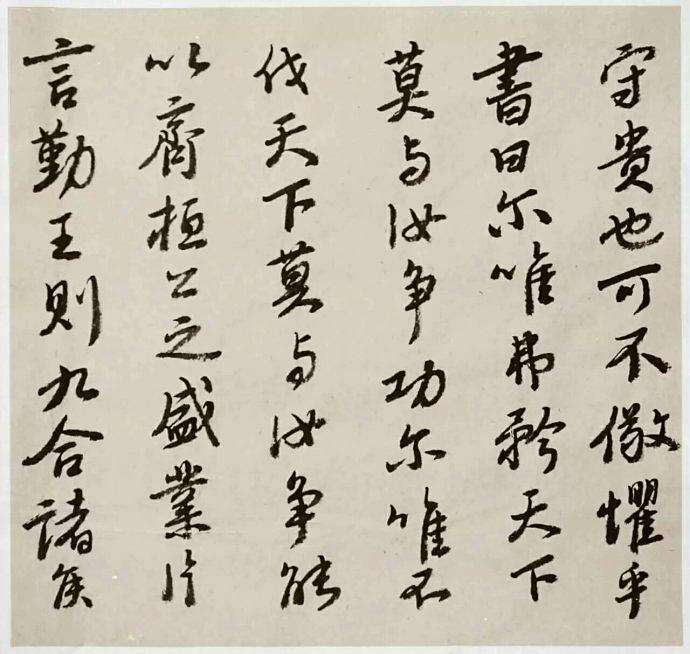 守貴也可不儆懼乎
書曰尔唯弗矜天下
莫与汝争功尔唯不
伐天下莫与汝争能
以齊桓公之盛業片
言勤王則九合諸侯